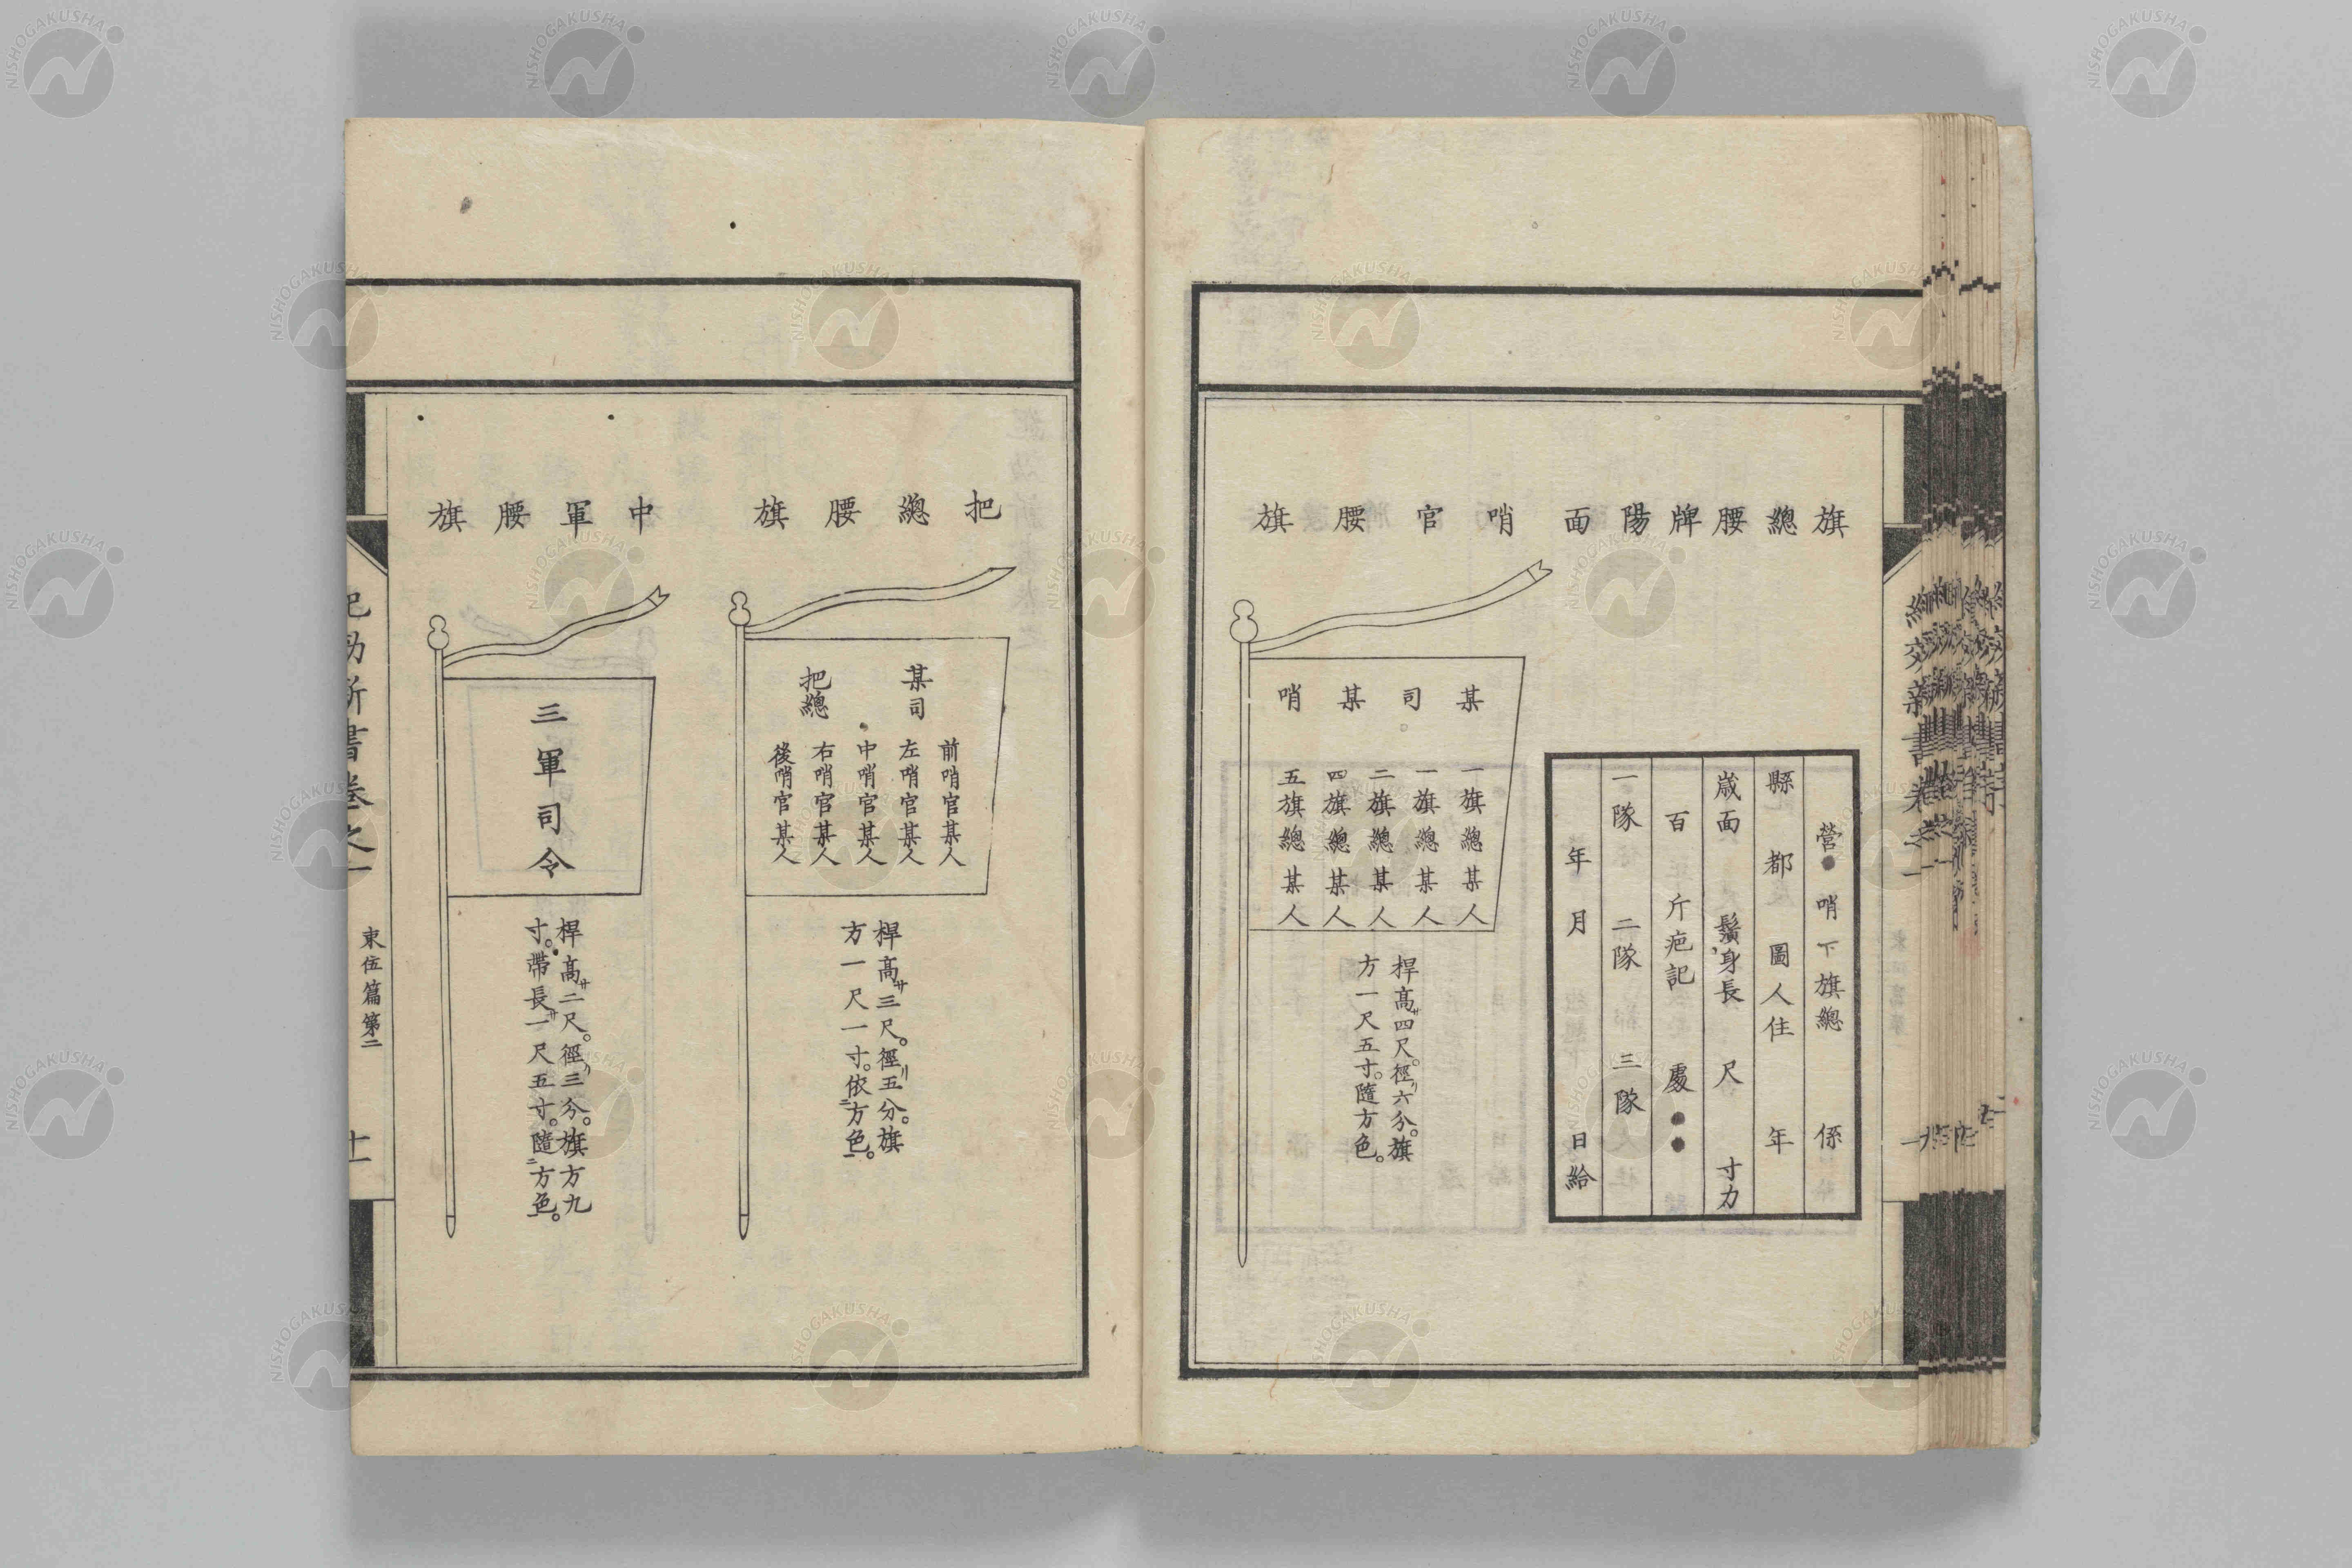 旗總腰牌陽面
營 哨下旗總 係
縣 都 圖人住 年
歲面 鬚身長 尺 寸力
百 斤疤記 處
一隊 二隊 三隊
年 月 日給
哨官腰旗
某司某哨
一旗總某人
一旗總某人
二旗總某人
四旗總某人
五旗總某人
桿高サ四尺。徑リ六分。旗
方一尺五寸。隨方色。
把總腰旗
某司
把總
前哨官某人
左哨官某人
中哨官某人
右哨官某人
後哨官某人
桿高サ三尺。徑リ五分。旗
方一尺一寸。依二方色一。
中軍腰旗
三軍司令
桿高サ二尺。徑リ三分。旗方九
寸。帶長サ一尺五寸。隨二方色一。
紀効新書卷之一
束伍篇第二
十一
NISHOGAKUSHA